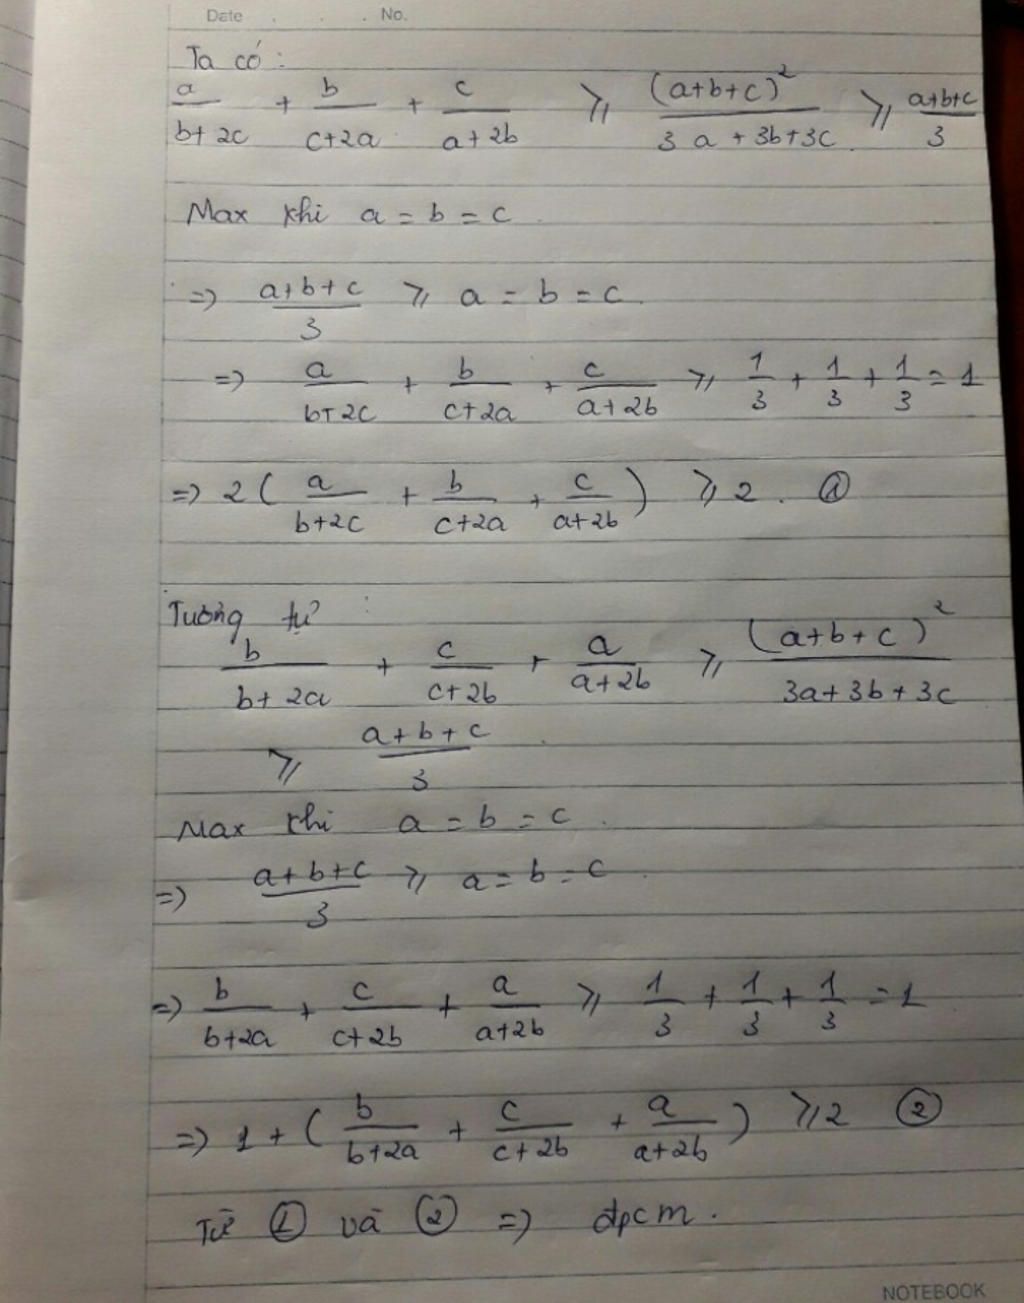 Date . . . No.
Ta có :
a/(b+2c) + b/(c+2a) + c/(a+2b) ⩾ (a+b+c)²/(3a+3b+3c) ⩾ (a+b+c)/3
Max khi a = b = c .
=> (a+b+c)/3 ⩾ a = b = c .
=> a/(b+2c) + b/(c+2a) + c/(a+2b) ⩾ 1/3 + 1/3 + 1/3 = 1
=> 2 ( a/(b+2c) + b/(c+2a) + c/(a+2b) ) ⩾ 2 . ①
Tương tự :
b/(b+2a) + c/(c+2b) + a/(a+2b) ⩾ (a+b+c)²/(3a+3b+3c)
⩾ (a+b+c)/3 .
Max khi a = b = c .
=> (a+b+c)/3 ⩾ a = b = c .
=> b/(b+2a) + c/(c+2b) + a/(a+2b) ⩾ 1/3 + 1/3 + 1/3 = 1
=> 1 + ( b/(b+2a) + c/(c+2b) + a/(a+2b) ) ⩾ 2 ②
Từ ① và ② => đpcm .
NOTEBOOK